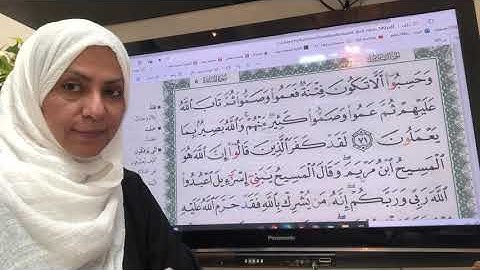 وَحَسِبُوٓا۟ أَلَّا تَكُونَ فِتْنَةٌ فَعَمُوا۟ وَصَمُّوا۟ ثُمَّ تَابَ ٱللَّهُ
عَلَيْهِمْ ثُمَّ عَمُوا۟ وَصَمُّوا۟ كَثِيرٌ مِّنْهُمْ ۚ وَٱللَّهُ بَصِيرٌۢ بِمَا
يَعْمَلُونَ ٧١ لَقَدْ كَفَرَ ٱلَّذِينَ قَالُوٓا۟ إِنَّ ٱللَّهَ هُوَ
ٱلْمَسِيحُ ٱبْنُ مَرْيَمَ ۖ وَقَالَ ٱلْمَسِيحُ يَـٰبَنِىٓ إِسْرَٰٓءِيلَ ٱعْبُدُوا۟
ٱللَّهَ رَبِّى وَرَبَّكُمْ ۖ إِنَّهُۥ مَن يُشْرِكْ بِٱللَّهِ فَقَدْ حَرَّمَ ٱللَّهُ عَلَيْهِ
Panasonic